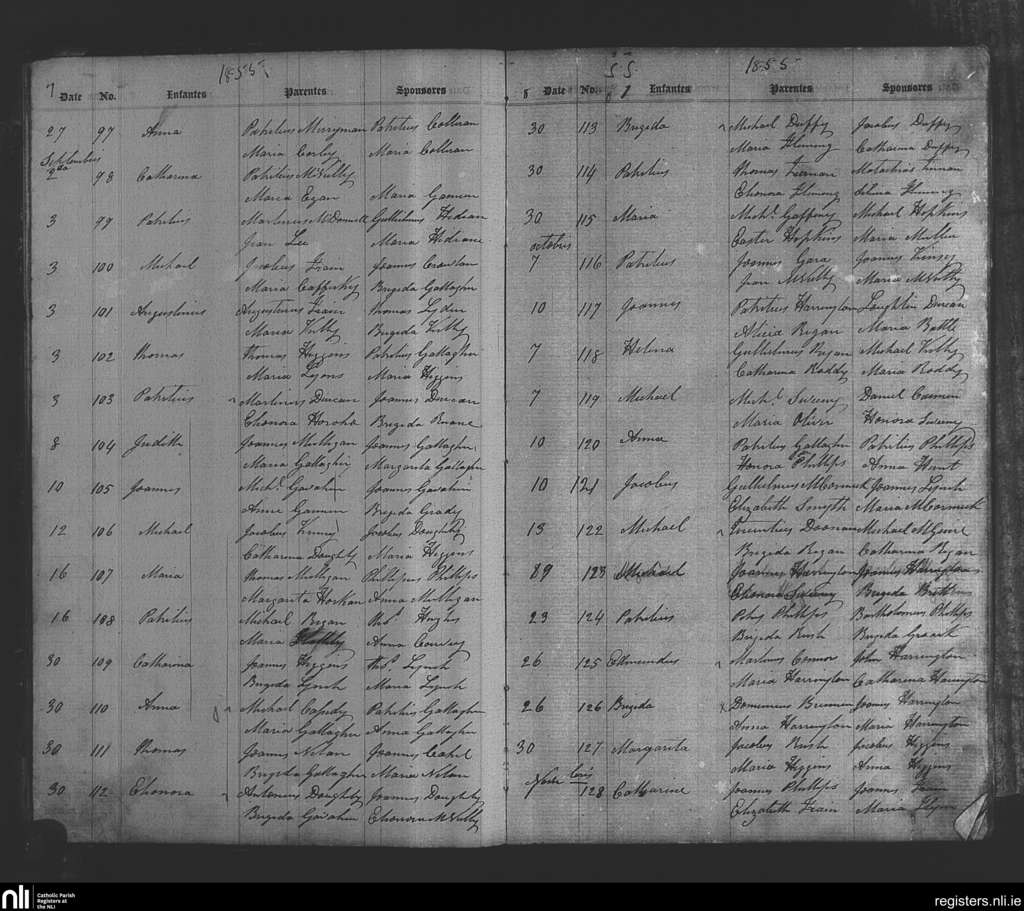 7
1855
Date No. Infantes Parentes Sponsores
27 97 Anna Patritius Merryman Patritius Colleran
Maria Corley Maria Colleran
Septembris
2da 98 Catharina Patritius McNulty
Maria Egan Maria Gannon
3 99 Patritius Martinus McDonnell Gullielmus Hedian
Jean Lee Maria Hediane
3 100 Michael Jacobus Frain Joannes
Maria Caffrky Brigida Gallagher
3 101 Augustinus Augustinus Frain Thomas Lydon
Maria Brigida
3 102 Thomas Thomas Higgins Patritius Gallagher
Maria Lyons Maria Higgins
3 103 Patritius Martinus Duncan Joannes Duncan
Ehonora Horoho Brigida Ruane
8 104 Judith Joannes Mulligan Joannes Gallagher
Maria Gallagher Margarita Gallagher
10 105 Joannes Michl. Gavahin Joannes Gavahin
Anne Gannon Brigida Grady
12 106 Michael Jacobus Jacobus Doughty
Catharina Doughty Maria Higgins
16 107 Maria Thomas Mulligan Phillipus Phillips
Margarita Horkan Anna Mulligan
16 108 Patritius Michael Regan Thos. Hughes
Maria Anna Conway
30 109 Catharina Joannes Higgins Thos. Lynch
Brigida Lynch Maria Lynch
30 110 Anna Michael Cassidy Patritius Gallagher
Maria Gallagher Anna Gallagher
30 111 Thomas Joannes Nolan Joannes Cahel
Brigida Gallagher Maria Nolan
30 112 Ehonora Antonius Doughty Joannes Doughty
Brigida Gavahin Ehonora McNulty
55 1855
8 Date No. Infantes Parentes Sponsores
30 113 Brigida Michael Duffy Jacobus Duffy
Maria Fleming Catharina Duffy
30 114 Patritius Thomas Finnan
Ehonora Fleming Fleming
30 115 Maria Michl. Gaffeney Michael Hopkins
Easter Hopkins Maria Mullin
Octobris
7 116 Patritius Joannes Gara Joannes
Jean McNulty Maria McNulty
10 117 Joannes Patritius Harrington Laughlin Duncan
Alicia Regan Maria Battle
7 118 Helena Gullielmus Regan Michael
Catharina Roddy Maria Roddy
7 119 Michael Michl. Sweeny Daniel
Maria Oliver Honora Sweeny
10 120 Anna Patritius Gallagher Patritius Phillips
Honora Phillips Anna Hunt
10 121 Jacobus Gullielmus McCormick Joannes Lynch
Elizabeth Smyth Maria McCormick
13 122 Michael Doonan Michael McGuire
Brigida Regan Catharina Regan
123 Michael Joannes Harrington Joannes Harrington
Ehonora Sweeny Brigida
23 124 Patritius Phillips Bartholomeus Phillips
Brigida Rush Brigida
26 125 Edmundus Martinus Connor John Harrington
Maria Harrington Catharina Harrington
26 126 Brigida Brennan Joannes Harrington
Anna Harrington Maria Harrington
30 127 Margarita Jacobus Rush Jacobus Higgins
Maria Higgins Anna Higgins
1 128 Catharine Joannes Phillips Joannes Frain
Elizabeth Frain Maria Flynn
nli Catholic Parish
Registers at
the NLI
registers.nli.ie